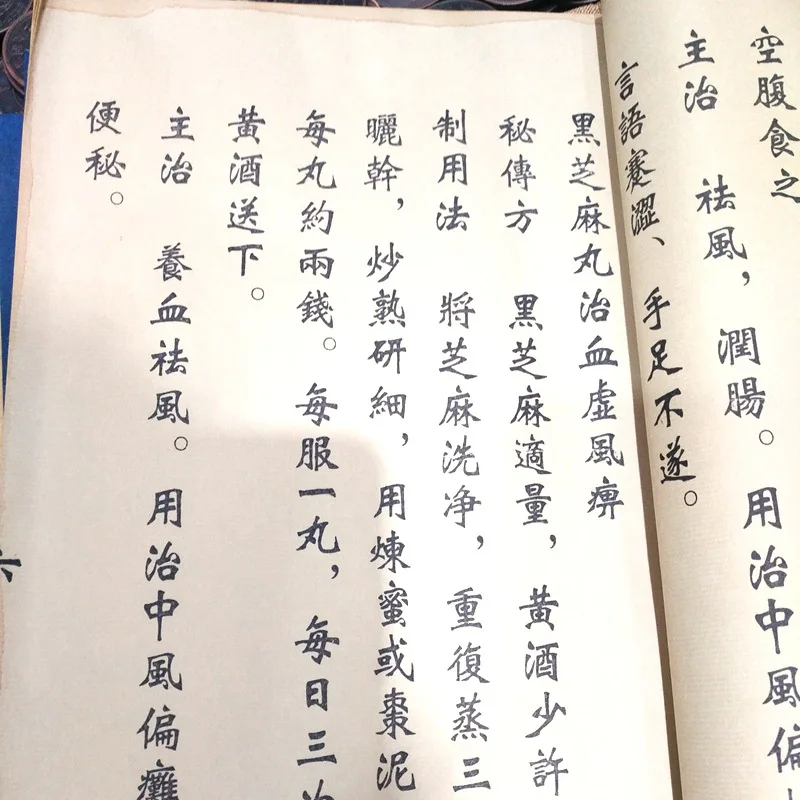 空腹食之
主治　祛風，潤腸。用治中風偏
言語蹇澀、手足不遂。
黑芝麻丸治血虛風痹
秘傳方　黑芝麻適量，黄酒少許
制用法　將芝麻洗净，重復蒸三
曬幹，炒熟研細，用煉蜜或棗泥
每丸約兩錢。每服一丸，每日三次
黄酒送下。
主治　養血祛風。用治中風偏癱
便秘。
六